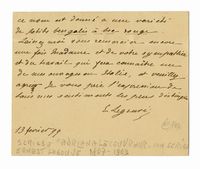 ce nom est donné à une variété
de petits bengalis à bec rouge.
Laissez moi vous remercier encore
une fois Madame et de votre sympathie
et du travail qui fera connaître un
de mes ouvrages en Italie, et veuillez
agréer je vous prie l'expression de
tous mes sentiments les plus distingués
E. Legouvé
13 février 99
ERNEST LEGOUVÉ 1807-1903